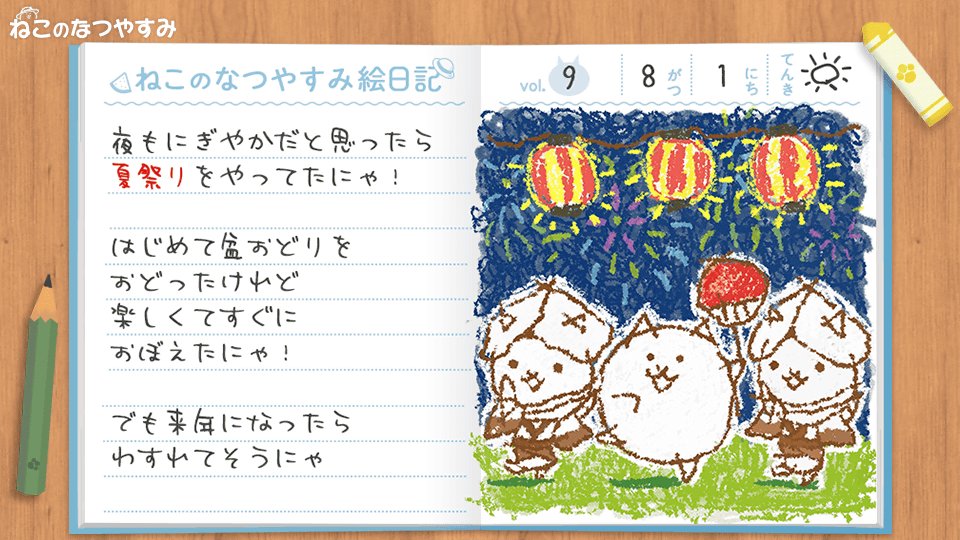 ねこのなつやすみ
ねこのなつやすみ絵日記
vol. 9 8がつ 1にち てんき
夜もにぎやかだと思ったら
夏祭りをやってたにゃ！
はじめて盆おどりを
おどったけれど
楽しくてすぐに
おぼえたにゃ！
でも来年になったら
わすれてそうにゃ